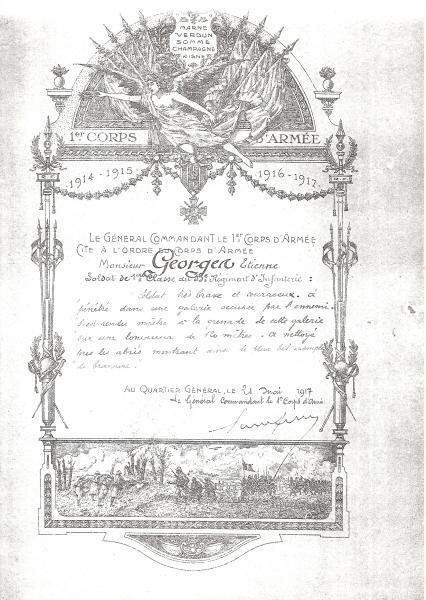 MARNE
VERDUN
SOMME
CHAMPAGNE
AISNE
1er CORPS D'ARMÉE
1914-1915 1916-1917
LE GÉNÉRAL COMMANDANT LE 1er CORPS D'ARMÉE
CITE À L'ORDRE DU CORPS D'ARMÉE
Monsieur Georges Etienne
Soldat de 1re Classe au 233e Régiment d'Infanterie :
Soldat très brave et courageux. a
pénétré dans une galerie occupée par l'ennemi
s'est rendu maître à la grenade de cette galerie
sur une longueur de 20 mètres. a nettoyé
tous les abris montrant ainsi le plus bel exemple
de bravoure.
AU QUARTIER GÉNÉRAL, le 21 Mai 1917
Le Général Commandant le 1er Corps d'Armée